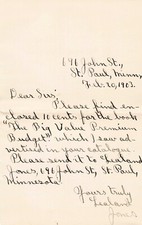 196 John St.,
St. Paul, Minn.,
Feb. 20, 1903.
Dear Sirs:
Please find en-
closed 10 cents for the book
"The Big Value Premium
Budget" which I saw ad-
vertised in your catalogue.
Please send it to Leeland
Jones, 196 John St., St. Paul,
Minnesota.
Yours truly
Leeland
Jones